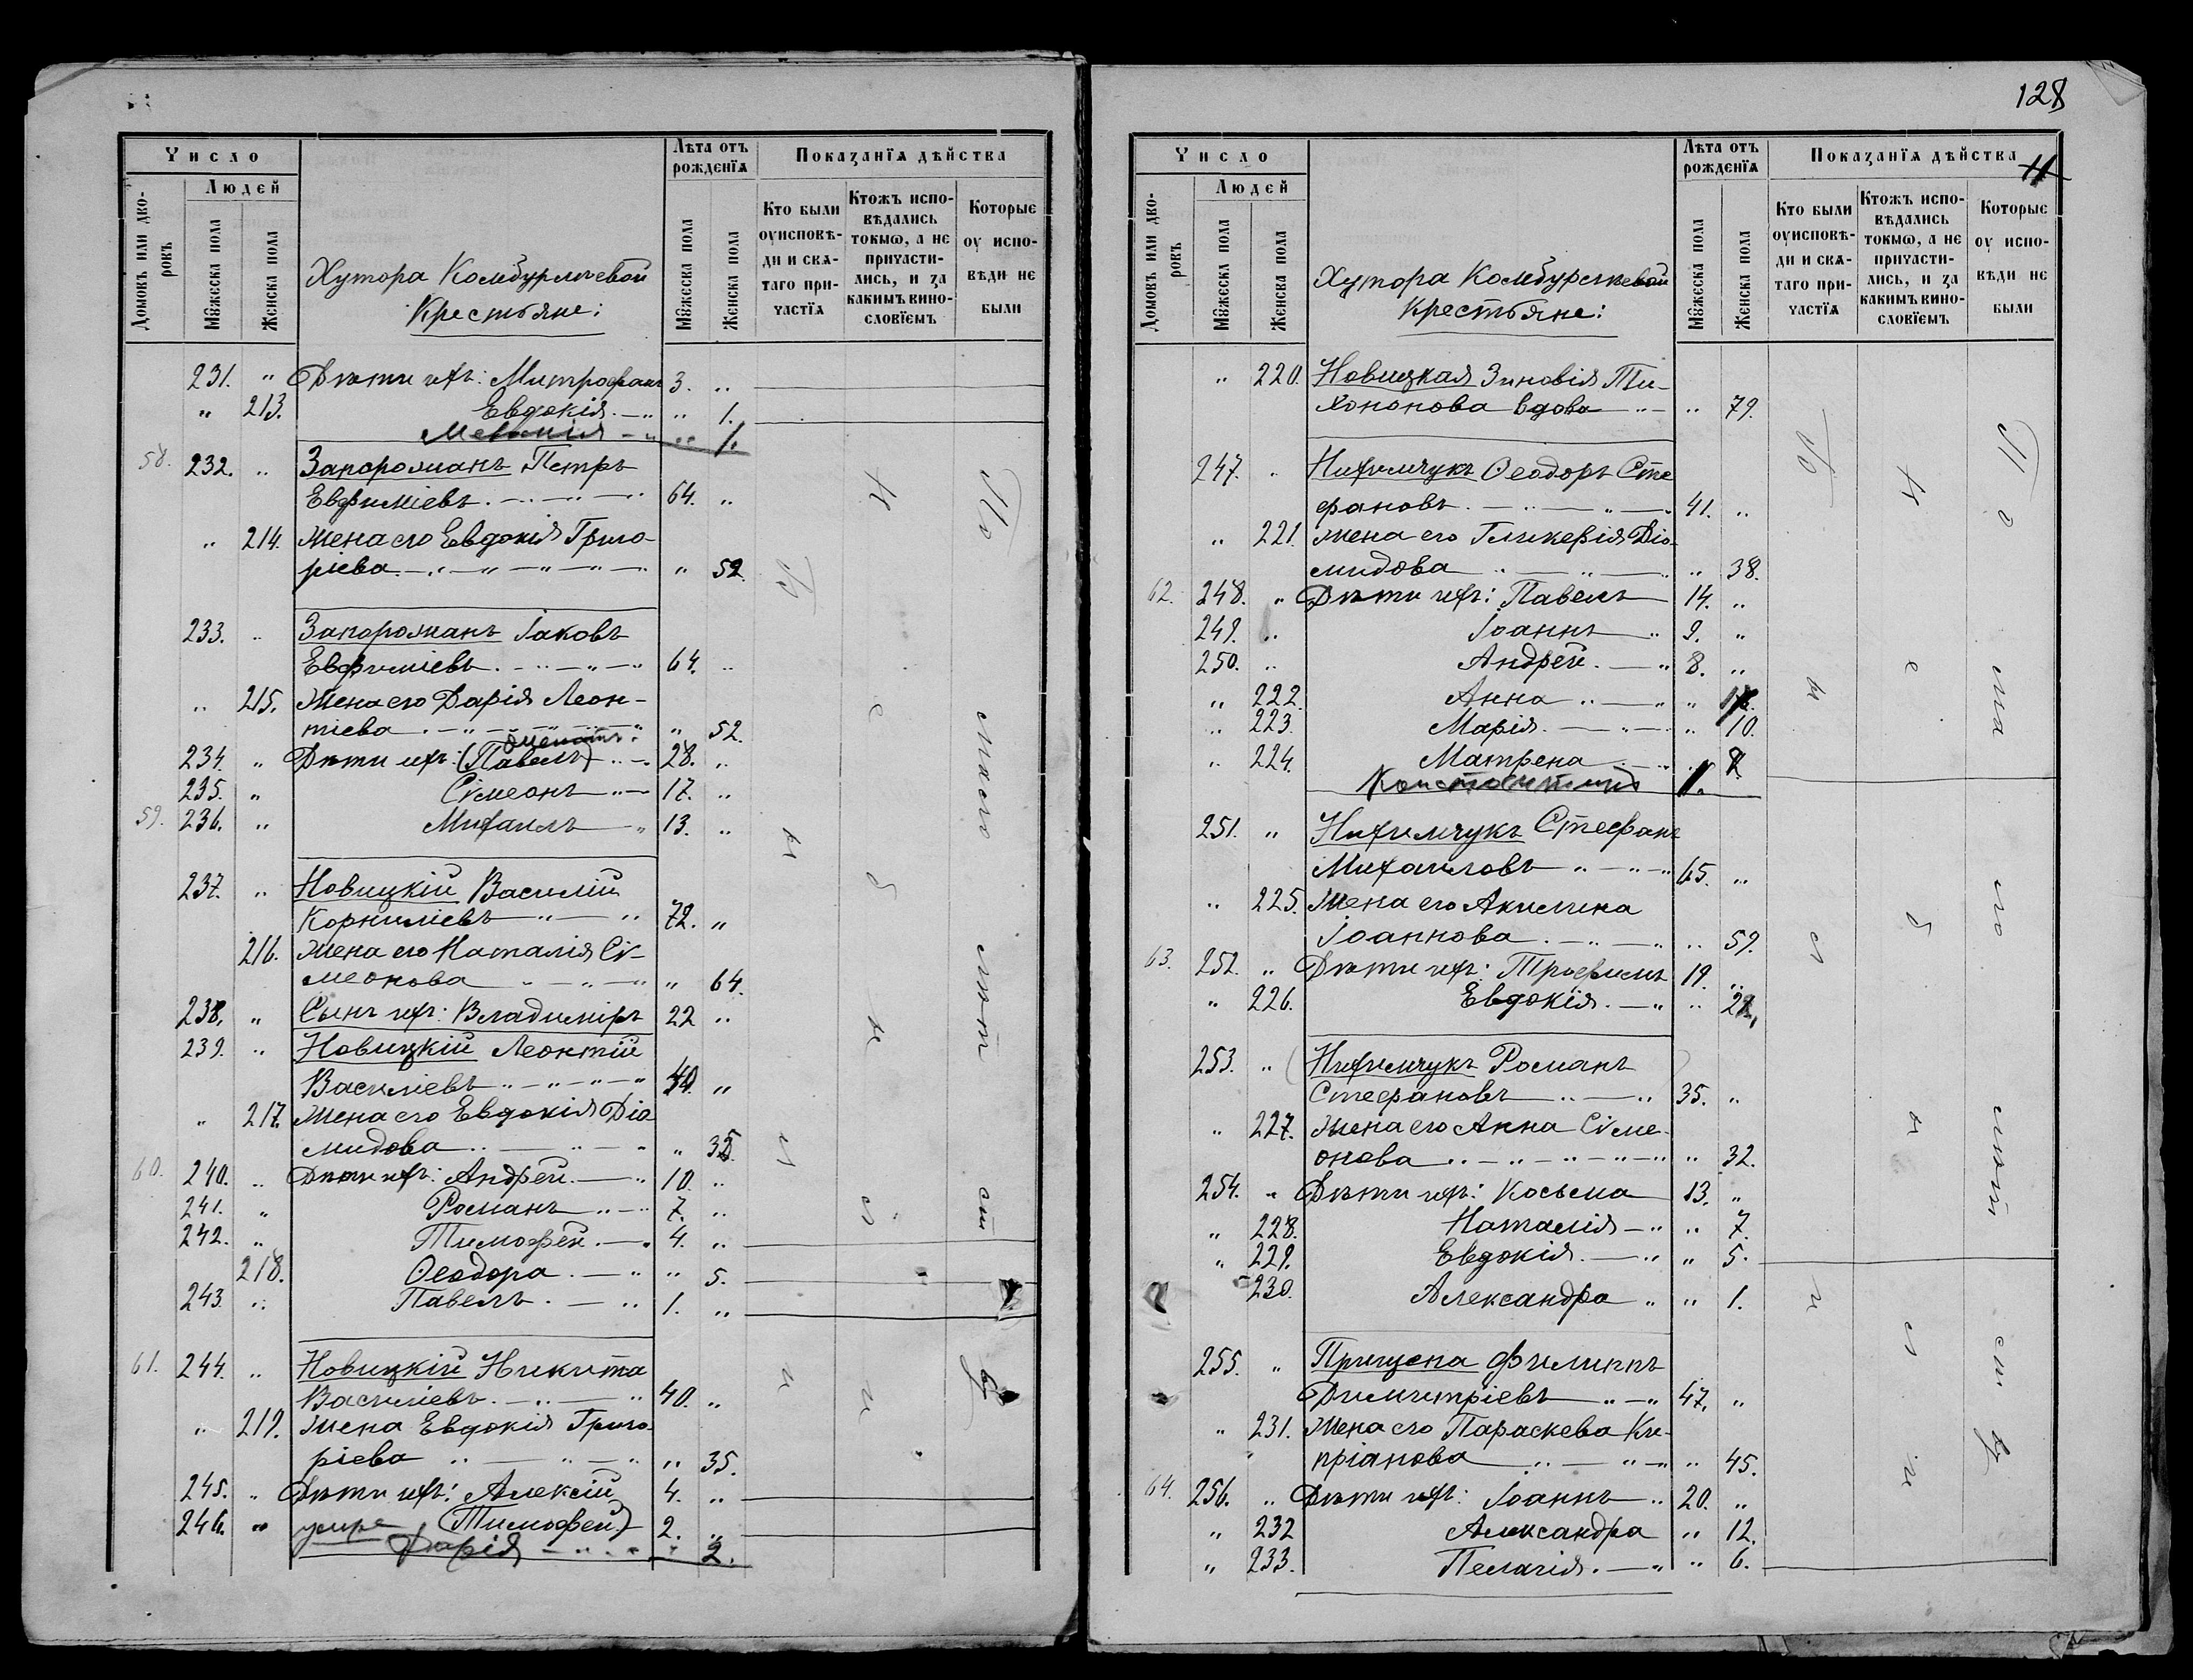 128
Число
Людей
Домовъ или дворовъ
Мꙋжеска пола
Женска пола
Хутора Комбурлиевой
Крестьяне:
Лѣта отъ рожденїѧ
Мꙋжеска пола
Женска пола
Показанїѧ дѣйства
Кто были оуисповѣди и свѧтаго причастїѧ
Ктожъ исповѣдались токмѡ, а не причастились, и за какимъ винословїемъ
Которые оу исповѣди не были
231. " Дѣти ихъ: Митрофанъ 3. "
" 213. Евдокія " 1.
1.
58. 232. " Запорожанъ Петръ
Евфиміевъ 64. "
" 214. Жена его Евдокія Григо-
ріева " 52.
233. " Запорожанъ Іаковъ
Евфиміевъ 64. "
" 215. Жена его Дарія Леон-
тіева " 52.
234. " Дѣти ихъ: (Павелъ) 28. "
235. " Сѵмеонъ 17. "
59. 236. " Михаилъ 13. "
237. " Новицкій Василій
Корниліевъ 72. "
216. Жена его Наталія Сѵ-
меонова " 64.
238. " Сынъ ихъ: Владиміръ 22 "
239. " Новицкій Леонтій
Василіевъ "
" 217. Жена его Евдокія Діо
мидова "
60. 240. " Дѣти ихъ: Андрей 10. "
241. " Романъ 7. "
242. " Тимофей 4. "
218. Ѳеодора " 5.
243. " Павелъ 1. "
61. 244. " Новицкій Никита
Василіевъ 40. "
" 219. Жена Евдокія Григо-
ріева " 35.
245. " Дѣти ихъ: Алексій 4. "
246. " умре (Тимофей) 2. "
Дарія " 2.
По малолѣтству
Не бы ли
Бы ли
Число
Людей
Домовъ или дворовъ
Мꙋжеска пола
Женска пола
Хутора Комбурлиевой
Крестьяне:
Лѣта отъ рожденїѧ
Мꙋжеска пола
Женска пола
Показанїѧ дѣйства
Кто были оуисповѣди и свѧтаго причастїѧ
Ктожъ исповѣдались токмѡ, а не причастились, и за какимъ винословїемъ
Которые оу исповѣди не были
" 220. Новицкая Зиновія Ти-
хононова вдова " 79.
247. " Нихимчукъ Ѳеодоръ Сте
фановъ 41. "
" 221. Жена его Гликерія Діо-
мидова " 38.
62. 248. " Дѣти ихъ: Павелъ 14. "
249. " Іоаннъ 9. "
250. " Андрей 8. "
" 222. Анна "
" 223. Марія " 10.
" 224. Матрена "
Константинъ 1.
251. " Нихимчукъ Стефанъ
Михаиловъ 65. "
" 225. Жена его Акилина
Іоаннова " 59.
63. 252. " Дѣти ихъ: Трофимъ 19. "
" 226. Евдокія "
253. " (Нихимчукъ Романъ)
Стефановъ 35. "
" 227. Жена его Анна Сѵме-
онова " 32.
254. " Дѣти ихъ: Косьма 13. "
" 228. Наталія " 7.
" 229. Евдокія " 5.
" 230. Александра " 1.
255. " Прицепа Филиппъ
Димитріевъ 47. "
" 231. Жена его Параскева Ки-
пріанова " 45.
64. 256. " Дѣти ихъ: Іоаннъ 20. "
" 232 Александра " 12.
" 233. Пелагія " 6.